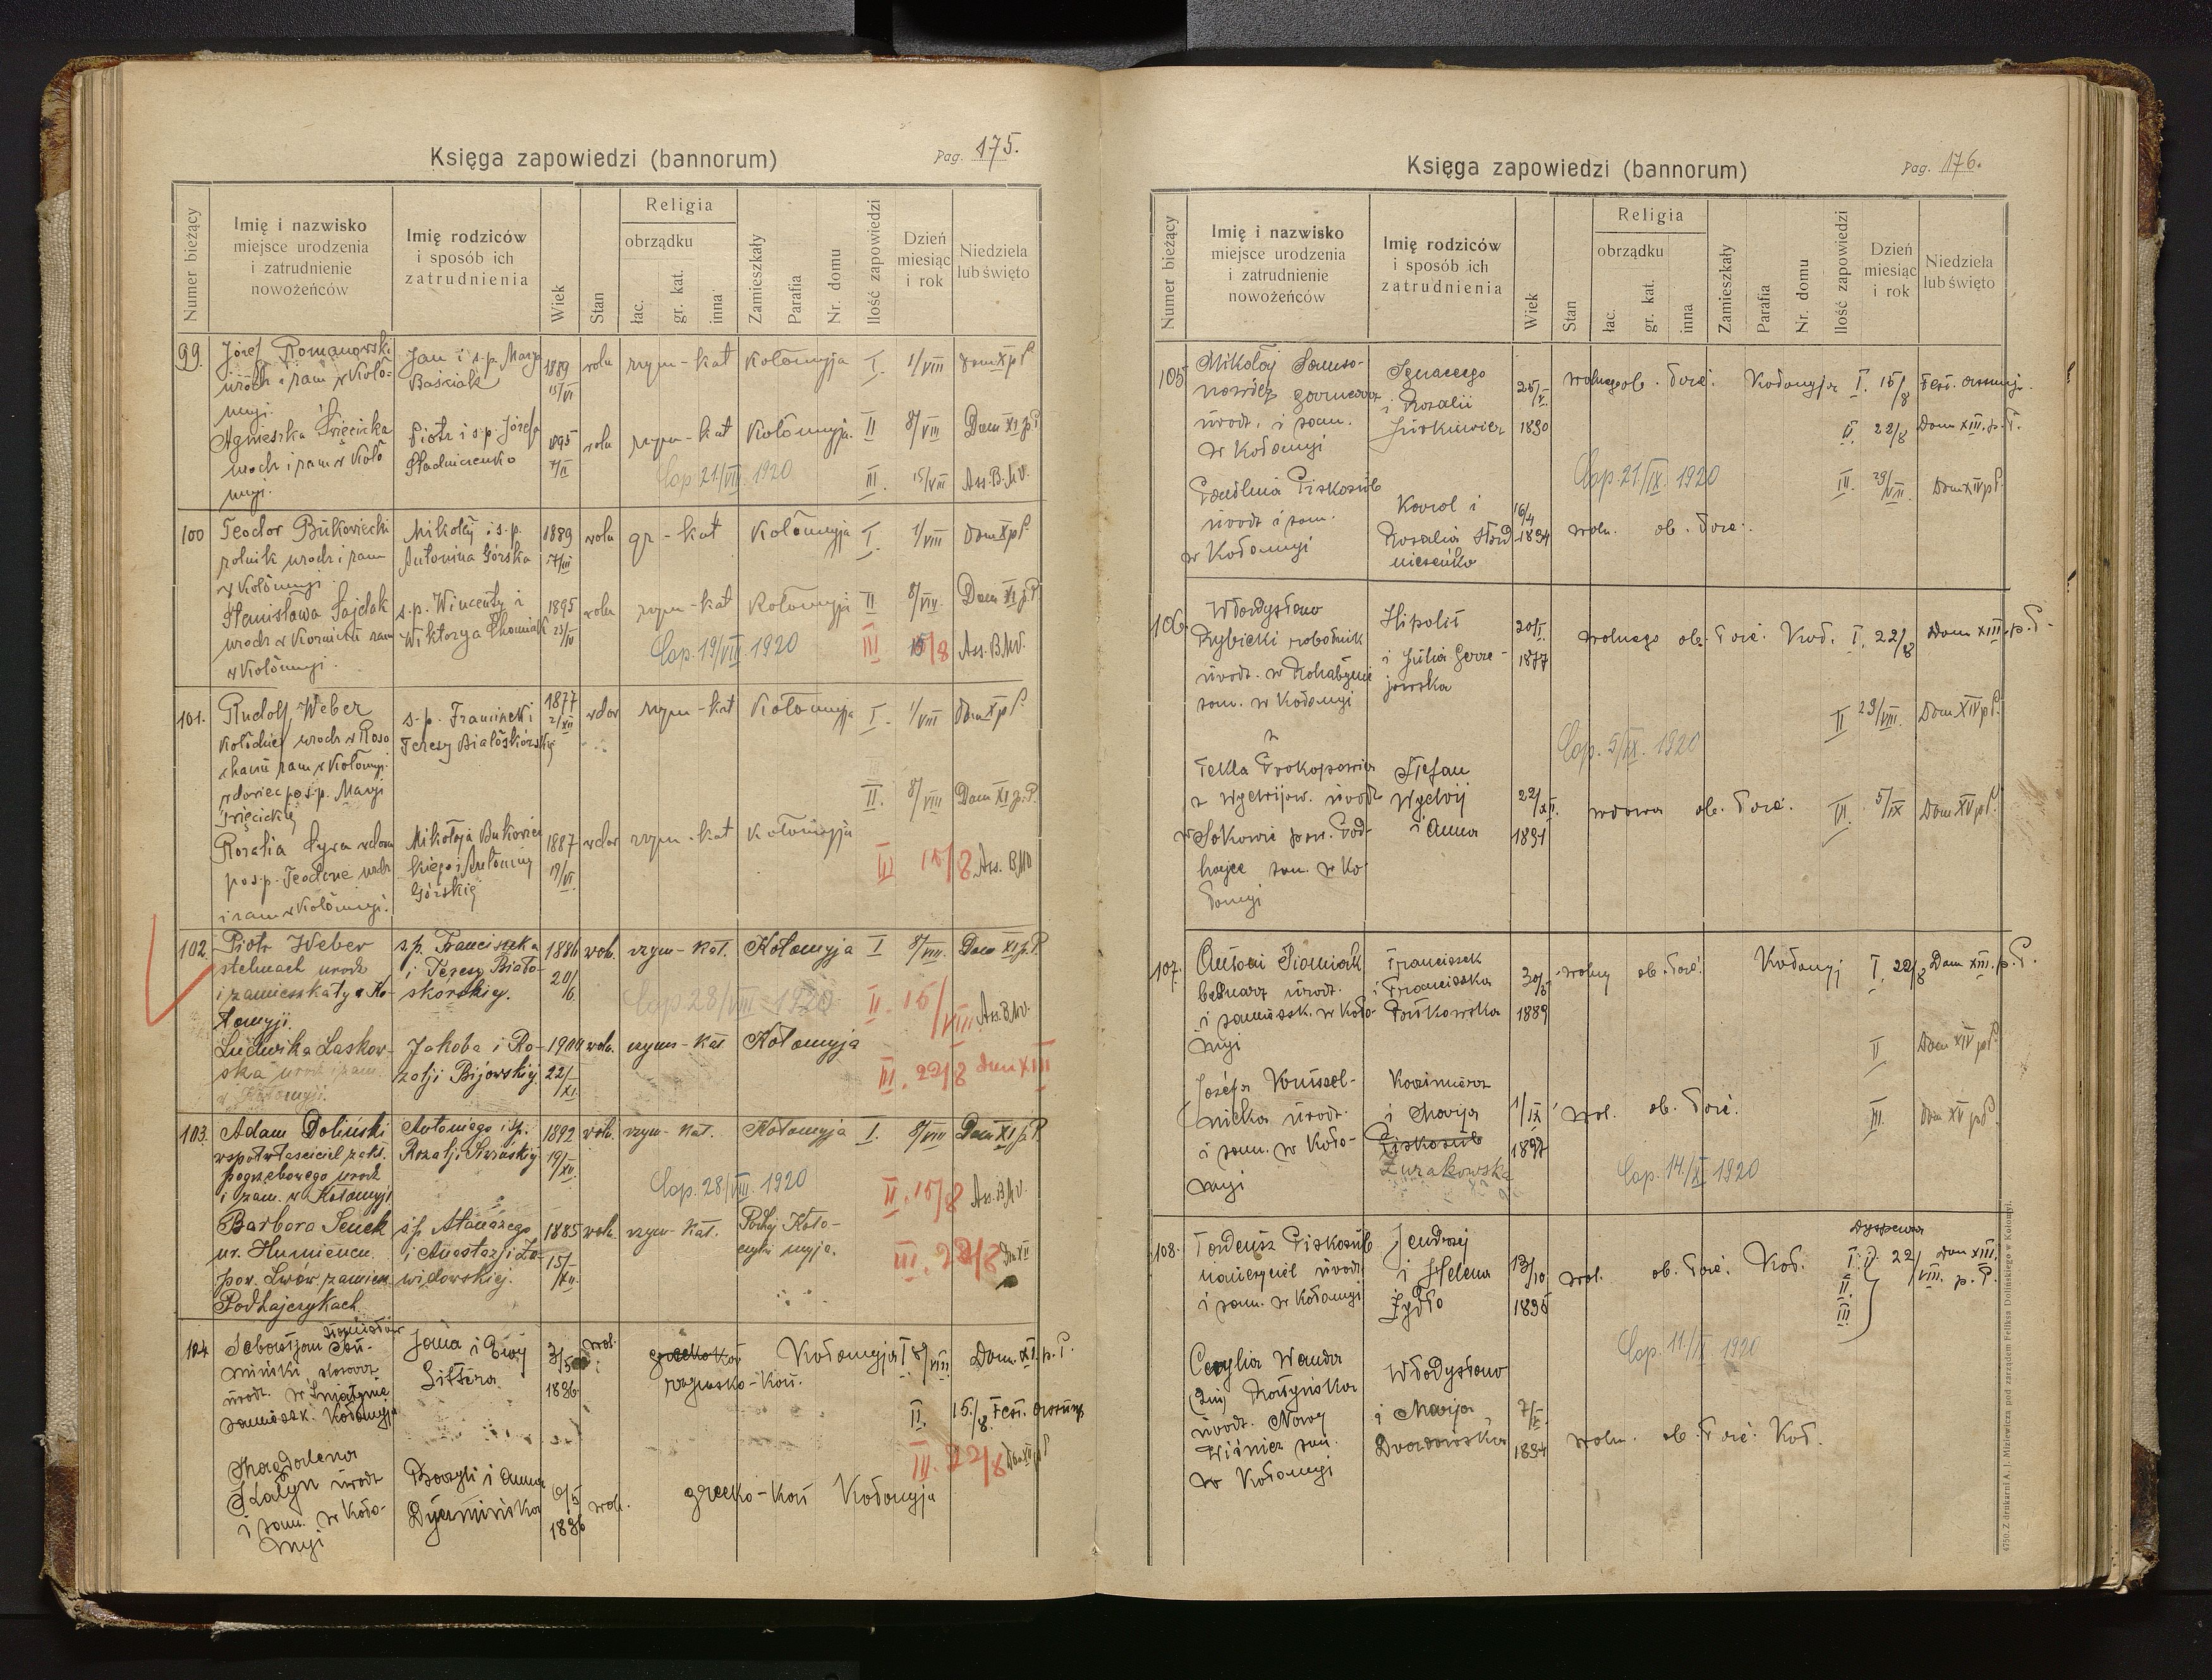 Księga zapowiedzi (bannorum)
Pag. 175.
Numer bieżący
Imię i nazwisko
miejsce urodzenia
i zatrudnienie
nowożeńców
Imię rodziców
i sposób ich
zatrudnienia
Wiek
Stan
Religia
obrządku
łac.
gr. kat.
inna
Zamieszkały
Parafia
Nr. domu
Ilość zapowiedzi
Dzień
miesiąc
i rok
Niedziela
lub święto
99. Józef Romanowski
urodz i zam w Koło-
myi.
Jan i s.p. Marja
Baściak
1889
13/VI
woln
rzym-kat
Kołomyja
I. 1/VIII Dom X p P
Agnieszka Święcicka
urodz i zam w Koło
myi.
Piotr i s.p. Józefa
Stadniczenko
1895
7/II
woln
rzym-kat
Kołomyja
II 8/VIII Dom XI p P
Cop 21/VIII 1920
III. 15/VIII Ass. B.M.V.
100 Teodor Bukowiecki
rolnik urodz i zam
w Kołomyi.
Mikołaj i s.p.
Antonina Górska
1889
17/III
woln
gr-kat
Kołomyja
I. 1/VIII Dom X p P
Stanisława Sajdak
urodz w Korniczu zam
w Kołomyi.
s.p. Wincenty i
Wiktorya Chomiak
1895
23/IV
woln
rzym-kat
Kołomyja
II 8/VIII. Dom XI p P
Cop. 19/VIII 1920
III 15/8 Ass. B.M.V.
101. Rudolf Weber
Kołodziej urodz w Roso
chaniu zam w Kołomyi.
wdowiec po s.p. Maryi
Święcickiej
s.p. Franciszek i
Teresy Białoskórskiej
1877
2/XII
wdow
rzym-kat
Kołomyja
I. 1/VIII Dom X p P
II. 8/VIII Dom XI p. P.
Rozalia Cyra wdowa
po s.p. Teodorze urodz
i zam w Kołomyi.
Mikołaja Bukowiec
kiego i Antoniny
Górskiej
1887
19/VI
wdow
rzym-kat
Kołomyja
III 15/8 Ass. BMV
102. Piotr Weber
stelmach urodz
i zamieszkały w Ko-
łomyji.
s.p. Franciszka
i Teresy Biało-
skórskiej.
1886
20/
6.
woln.
rzym-kat.
Kołomyja
I 8/VIII. Dom XI p. P.
Cop 28/VIII 1920
II. 15/VIII Ass. B.M.V.
Ludwika Laskow-
ska urodz i zam.
w Kołomyji.
Jakóba i Ro-
zalji Bijowskiej
1900
22/
XI.
woln.
rzym-kat
Kołomyja
III. 22/8 dom XII
103. Adam Doliński
współwłaściciel zakł.
pogrzebowego urodz
i zam. w Kołomyji
Antoniego i s.p.
Rozalji
1892
19/
XII.
woln.
rzym-kat.
Kołomyja
I. 8/VIII Dom XI p P.
Cop. 28/VIII 1920
II. 15/8 Ass. B.M.V.
Barbara Senek
ur. Humieniec
pow. Lwów, zamieszk
Podhajczykach
s.p. Atanazego
i Anastazji Za-
widowskiej.
1885
15/
XII.
woln.
rzym-kat.
Podhaj Koło-
czyki myja.
III. 22/8 Dom XII
104 Sebastjan Stanisław
miński, stolarz
urodz. w Śniatynie
zamieszk. Kołomyja
Jana i Ewy
Sittera
3/5
1896
wol.
grecko kat
rzymsko-kat.
Kołomyja I 8/VIII Dom. XI. p. P.
II. 15./8. Fest. Assump.
III. 22/8 Dom XII p P
Magdalena
urodz
i zam. w Koło-
myi
Bazyli i Anna
10/5
1896
wol.
grecko-kat Kołomyja
Księga zapowiedzi (bannorum)
Pag. 176.
Numer bieżący
Imię i nazwisko
miejsce urodzenia
i zatrudnienie
nowożeńców
Imię rodziców
i sposób ich
zatrudnienia
Wiek
Stan
Religia
obrządku
łac.
gr. kat.
inna
Zamieszkały
Parafia
Nr. domu
Ilość zapowiedzi
Dzień
miesiąc
i rok
Niedziela
lub święto
105 Mikołaj
urodz. i zam.
w Kołomyi
Ignacego
i Rozalii
Jurkiewicz
25/V.
1890
wolnego ob. łać. Kołomyja I. 15/8 Fest. Assump.
II. 22/8 Dom XIII. p. P.
Cop. 21./IX. 1920
III. 29/VIII. Dom XIV p P.
Paulina Piskozub
urodz i zam.
w Kołomyi
Karol i
Rozalia Stad
niczeńko
16/4
1894
woln. ob. łać.
106. Władysław
Rybicki robotnik
urodz. w Rohatynie
zam. w Kołomyi
Hipolit
i Julia Grze-
jowska
20/I.
1877
wolnego ob. łać. Koł. I. 22/8 Dom XIII. p. P.
II 29/VIII. Dom XIV p P.
Cop. 5/IX. 1920
Tekla Prokopowicz
z urodz
w Sokowie pow. Pod-
hajce zam. w Ko
łomyi
Stefan
i Anna
22/XII.
1891
wdowa ob. łać. III. 5/IX Dom XV p P.
107. Antoni Siomiak
bednarz urodz.
i zamieszk. w Koło-
myi
Franciszek
i Franciszka
Bułkowska
30/5
1889
wolny ob. łać. Kołomyj I. 22/8 Dom XIII. p. P.
II Dom XIV p P.
Józefa
urodz.
i zam. w Koło-
myi
Kazimierz
i Marja
Piskozub
Żurakowska
1/IX
1897
wol. ob. łać. III. Dom XV p P.
Cop. 14./XI 1920
108. Tadeusz Piskozub
nauczyciel urodz
i zam. w Kołomyi
Jendrzej
i Helena
Żydło
13/10
1895
wol. ob. łać. Koł.
Dyspensa
I. D. 22/VIII. Dom XIII. p. P.
II.
III
Cop. 11./IX 1920
Cecylia Wanda
(2im)
urodz. Nowy
Wiśnicz zam.
w Kołomyi
Władysław
i Marja
7/X.
1894
woln. ob. łać. Koł.
4750. Z drukarni A. J. Miziewicza pod zarządem Feliksa Dolińskiego w Kołomyi.